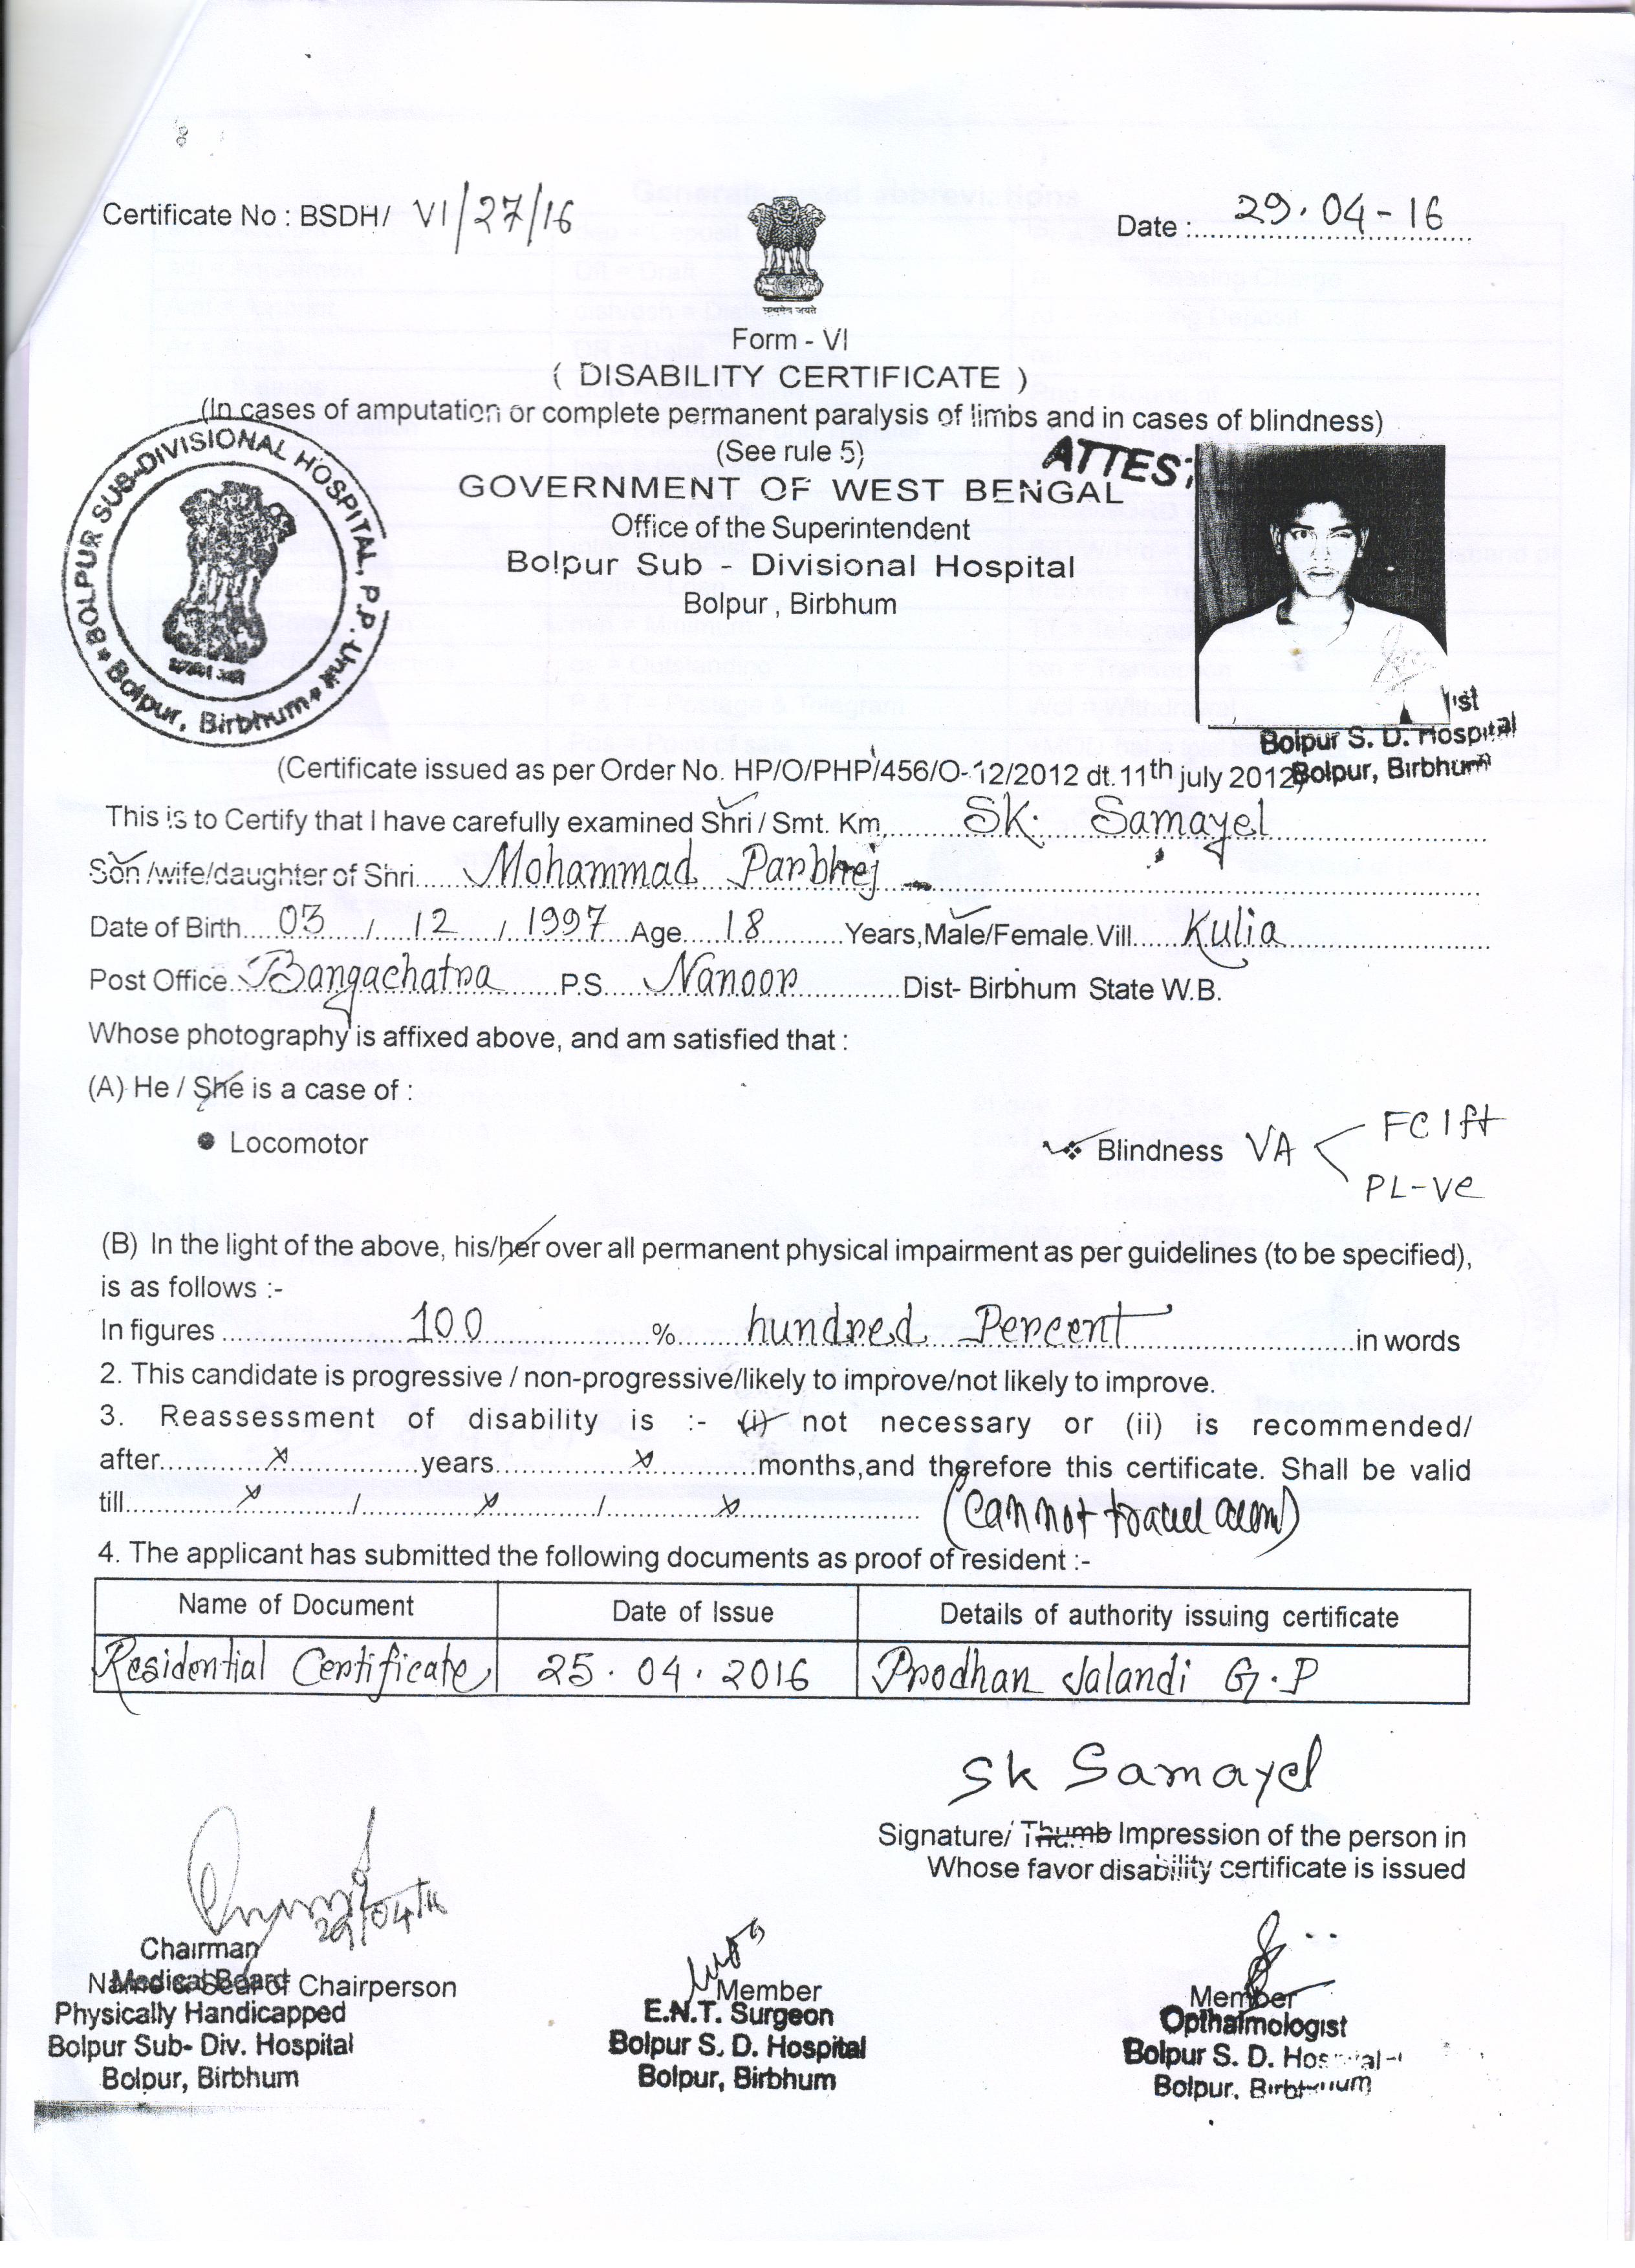 Certificate No : BSDH/ VI/27/16
Date : 29.04-16
सत्यमेव जयते
Form - VI
( DISABILITY CERTIFICATE )
(In cases of amputation or complete permanent paralysis of limbs and in cases of blindness)
(See rule 5)
ATTEST
GOVERNMENT OF WEST BENGAL
Office of the Superintendent
Bolpur Sub - Divisional Hospital
Bolpur , Birbhum
BOLPUR SUB-DIVISIONAL HOSPITAL, P.P. Unit
Bolpur, Birbhum
ist
Bolpur S. D. Hospital
Bolpur, Birbhum
(Certificate issued as per Order No. HP/O/PHP/456/O-12/2012 dt. 11th july 2012)
This is to Certify that I have carefully examined Shri / Smt. Km. SK. Samayel
Son /wife/daughter of Shri Mohammad Parbhej
Date of Birth 03 / 12 / 1997 Age 18 Years, Male/Female. Vill. Kulia
Post Office. Bangachatra P.S. Nanoor Dist- Birbhum State W.B.
Whose photography is affixed above, and am satisfied that :
(A) He / She is a case of :
● Locomotor
❖ Blindness VA < FC 1ft
PL-ve
(B) In the light of the above, his/her over all permanent physical impairment as per guidelines (to be specified),
is as follows :-
In figures 100 % hundred Percent in words
2. This candidate is progressive / non-progressive/likely to improve/not likely to improve.
3. Reassessment of disability is :- (i) not necessary or (ii) is recommended/
after x years x months,and therefore this certificate. Shall be valid
till x / x / x
(Cannot travel alone)
4. The applicant has submitted the following documents as proof of resident :-
Name of Document Date of Issue Details of authority issuing certificate
Residential Certificate 25.04.2016 Prodhan Jalandi G.P
Sk Samayel
Signature/ Thumb Impression of the person in
Whose favor disability certificate is issued
29/04/16
Chairman
Medical Board
Name & Seal of Chairperson
Physically Handicapped
Bolpur Sub- Div. Hospital
Bolpur, Birbhum
Member
E.N.T. Surgeon
Bolpur S. D. Hospital
Bolpur, Birbhum
Member
Opthalmologist
Bolpur S. D. Hospital
Bolpur, Birbhum